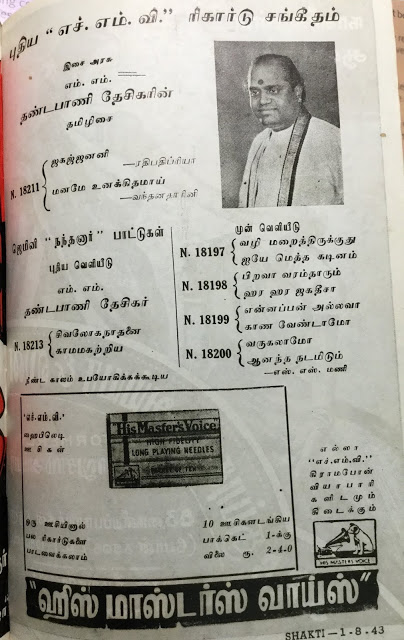 புதிய "எச். எம். வி." ரிகார்டு சங்கீதம்
இசை அரசு
எம். எம்.
தண்டபாணி தேசிகரின்
தமிழிசை
N. 18211
ஜகஜ்ஜனனி
—ரதிபதிப்ரியா
மனமே உனக்கிதமாய்
—வந்தனதாரினி
ஜெமினி "நந்தனார்" பாட்டுகள்
புதிய வெளியீடு
எம். எம்.
தண்டபாணி தேசிகர்
N. 18213
சிவலோகநாதனை
காமமகற்றிய
முன் வெளியீடு
N. 18197
வழி மறைத்திருக்குது
ஐயே மெத்த கடினம்
N. 18198
பிறவா வரம்தாரும்
ஹர ஹர ஜகதீசா
N. 18199
என்னப்பன் அல்லவா
காண வேண்டாமோ
N. 18200
வருகலாமோ
ஆனந்த நடமிடும்
—எஸ். எஸ். மணி
நீண்ட காலம் உபயோகிக்கக்கூடிய
'எச்.எம்.வி.'
ஹைபிலெடி
ஊசிகள்
His Master's Voice
HIGH FIDELITY
LONG PLAYING NEEDLES
ஒரு ஊசியினால்
பல ரிகார்டுகளை
பாடவைக்கலாம்
10 ஊசிகளடங்கிய
பாக்கெட் 1-க்கு
விலை ரூ. 2-4-0
எல்லா
"எச்.எம்.வி."
கிராமபோன்
வியாபாரி
களிடமும்
கிடைக்கும்
HIS MASTERS VOICE
"ஹிஸ் மாஸ்டர்ஸ் வாய்ஸ்"
SHAKTI—1-8-43